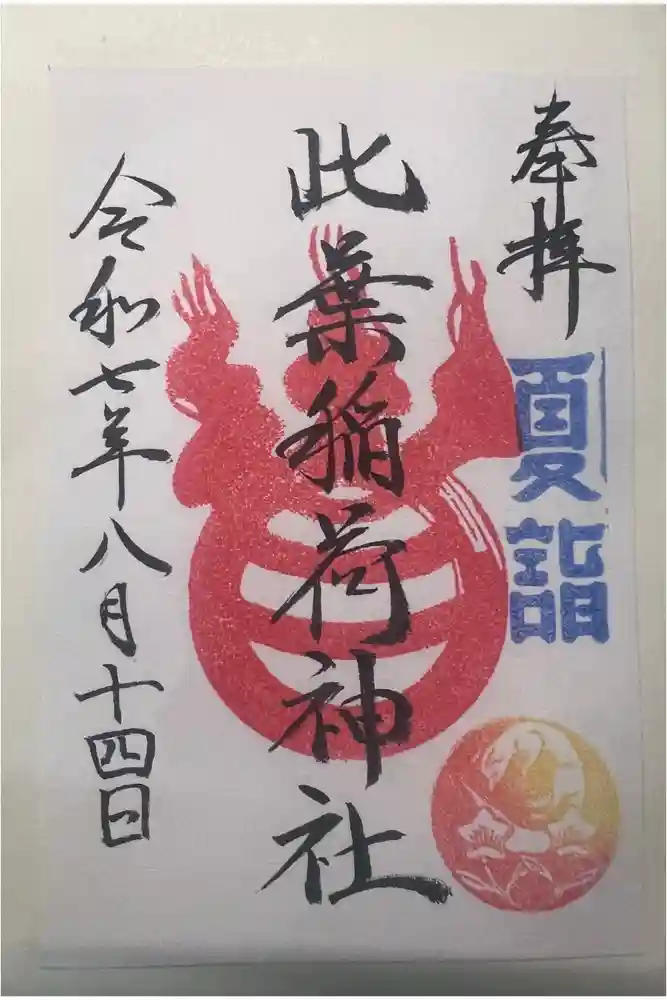 奉拝
夏詣
此葉稲荷神社
令和七年八月十四日